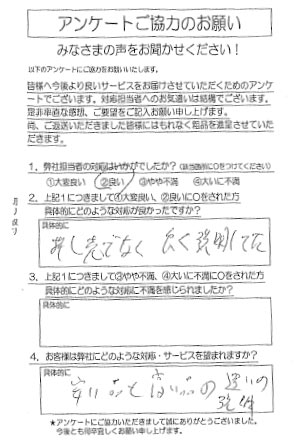 アンケートご協力のお願い
みなさまの声をお聞かせください！
以下のアンケートにご協力をお願いいたします。
皆様へ今後より良いサービスをお届けさせていただくためのアンケ
ートでございます。対応担当者へのお気遣いは結構でございます。
是非率直な感想、ご要望をご記入お願い申し上げます。
尚、ご返送いただきました皆様にはもれなく粗品を進呈させていた
だきます。
1. 弊社担当者の対応はいかがでしたか？(該当箇所に○をつけてください)
①大変良い ②良い ③やや不満 ④大いに不満
2. 上記1につきまして①大変良い、②良いに○をされた方
具体的にどのような対応が良かったですか？
具体的に
押し売でなく 良く説明してた
3. 上記1につきまして③やや不満、④大いに不満に○をされた方
具体的にどのような対応に不満を感じられましたか？
具体的に
4. お客様は弊社にどのような対応・サービスを望まれますか？
具体的に
安い品と高い品の違いの
説明
★アンケートにご協力いただきまして誠にありがとうございました。
今後とも何卒宜しくお願い申し上げます。